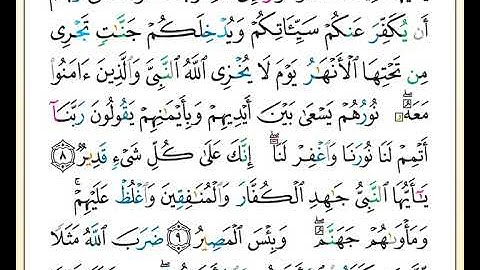 أَن يُكَفِّرَ عَنكُمْ سَيِّـَٔاتِكُمْ وَيُدْخِلَكُمْ جَنَّـٰتٍ تَجْرِى
مِن تَحْتِهَا ٱلْأَنْهَـٰرُ يَوْمَ لَا يُخْزِى ٱللَّهُ ٱلنَّبِىَّ وَٱلَّذِينَ ءَامَنُوا۟
مَعَهُۥ ۖ نُورُهُمْ يَسْعَىٰ بَيْنَ أَيْدِيهِمْ وَبِأَيْمَـٰنِهِمْ يَقُولُونَ رَبَّنَآ
أَتْمِمْ لَنَا نُورَنَا وَٱغْفِرْ لَنَآ ۖ إِنَّكَ عَلَىٰ كُلِّ شَىْءٍ قَدِيرٌ ٨
يَـٰٓأَيُّهَا ٱلنَّبِىُّ جَـٰهِدِ ٱلْكُفَّارَ وَٱلْمُنَـٰفِقِينَ وَٱغْلُظْ عَلَيْهِمْ ۚ
وَمَأْوَىٰهُمْ جَهَنَّمُ ۖ وَبِئْسَ ٱلْمَصِيرُ ٩ ضَرَبَ ٱللَّهُ مَثَلًا